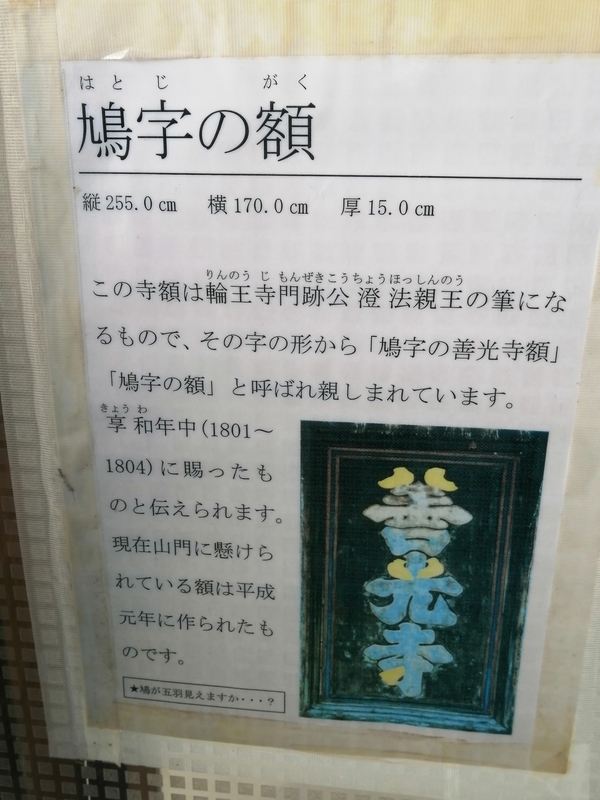 はとじ がく
鳩字の額
縦255.0㎝ 横170.0㎝ 厚15.0㎝
りんのう じ もんぜきこうちょうほっしんのう
この寺額は輪王寺門跡公澄法親王の筆にな
るもので、その字の形から「鳩字の善光寺額」
「鳩字の額」と呼ばれ親しまれています。
きょう わ
享和年中(1801～
1804)に賜ったも
のと伝えられます。
現在山門に懸けら
れている額は平成
元年に作られたも
のです。
★鳩が五羽見えますか・・・？
善光寺